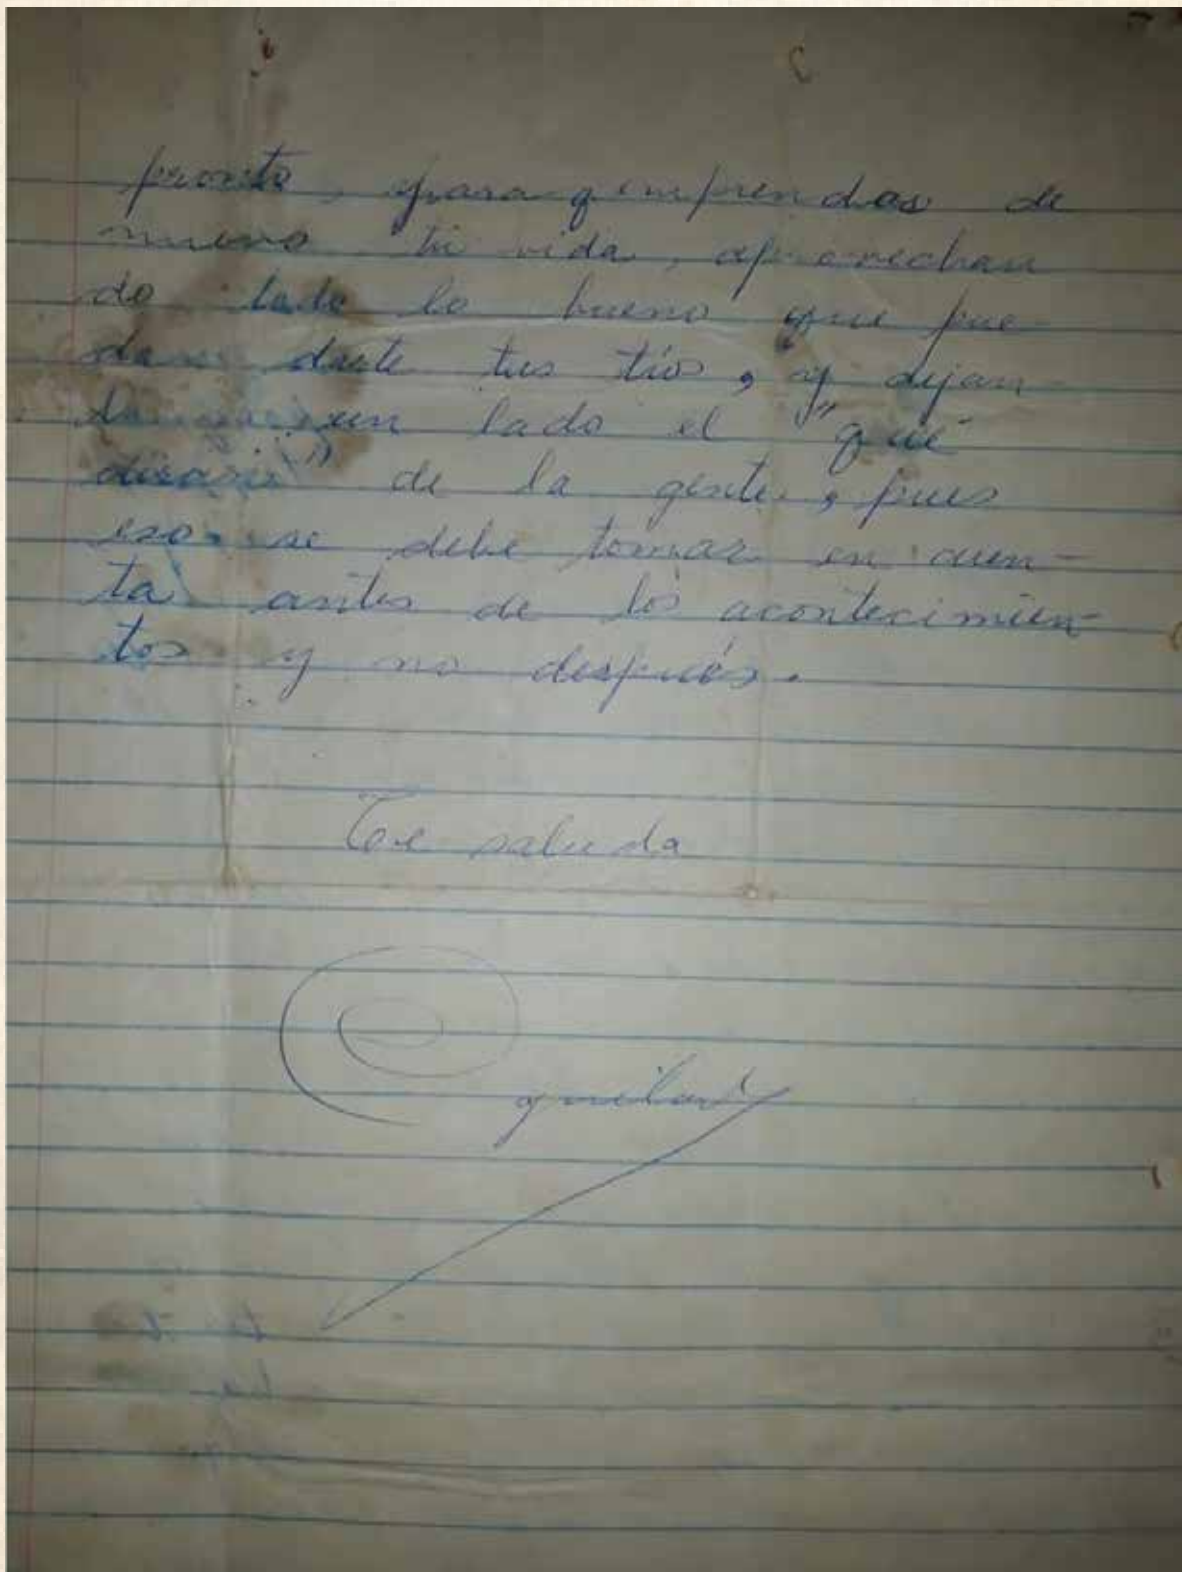 pronto, para q emprendas de
nuevo tu vida, aprovechan
do todo lo bueno que pue
dan darte tus tíos, y dejan
un lado el "qué
dirán" de la gente, pues
eso se debe tomar en cuen-
ta antes de los acontecimien-
tos y no después.
Te saluda